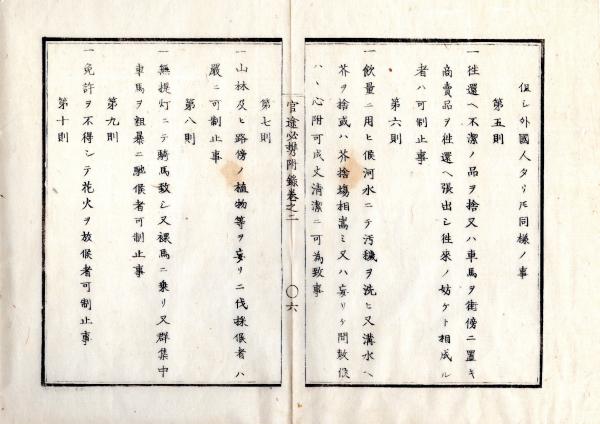 但シ外國人タリ𪜈同樣ノ事
第五則
一 徃還ヘ不潔ノ品ヲ捨又ハ車馬ヲ街傍ニ置キ
商賣品ヲ徃還ヘ張出シ徃來ノ妨ケト相成ル
者ハ可制止事
第六則
一 飲量ニ用ヒ候河水ニテ汚穢ヲ洗ヒ又溝水ヘ
芥ヲ捨或ハ芥捨塲相嵩ミ又ハ妄リケ間敷候
ハヽ心附可成丈清潔ニ可為致事
官途必携附錄卷之二
〇六
第七則
一 山林及ヒ路傍ノ植物等ヲ妄リニ伐採候者ハ
嚴ニ可制止事
第八則
一 無提灯ニテ騎馬致シ又裸馬ニ乗リ又群集中
車馬ヲ粗暴ニ馳候者可制止事
第九則
一 免許ヲ不得シテ花火ヲ放候者可制止事
第十則